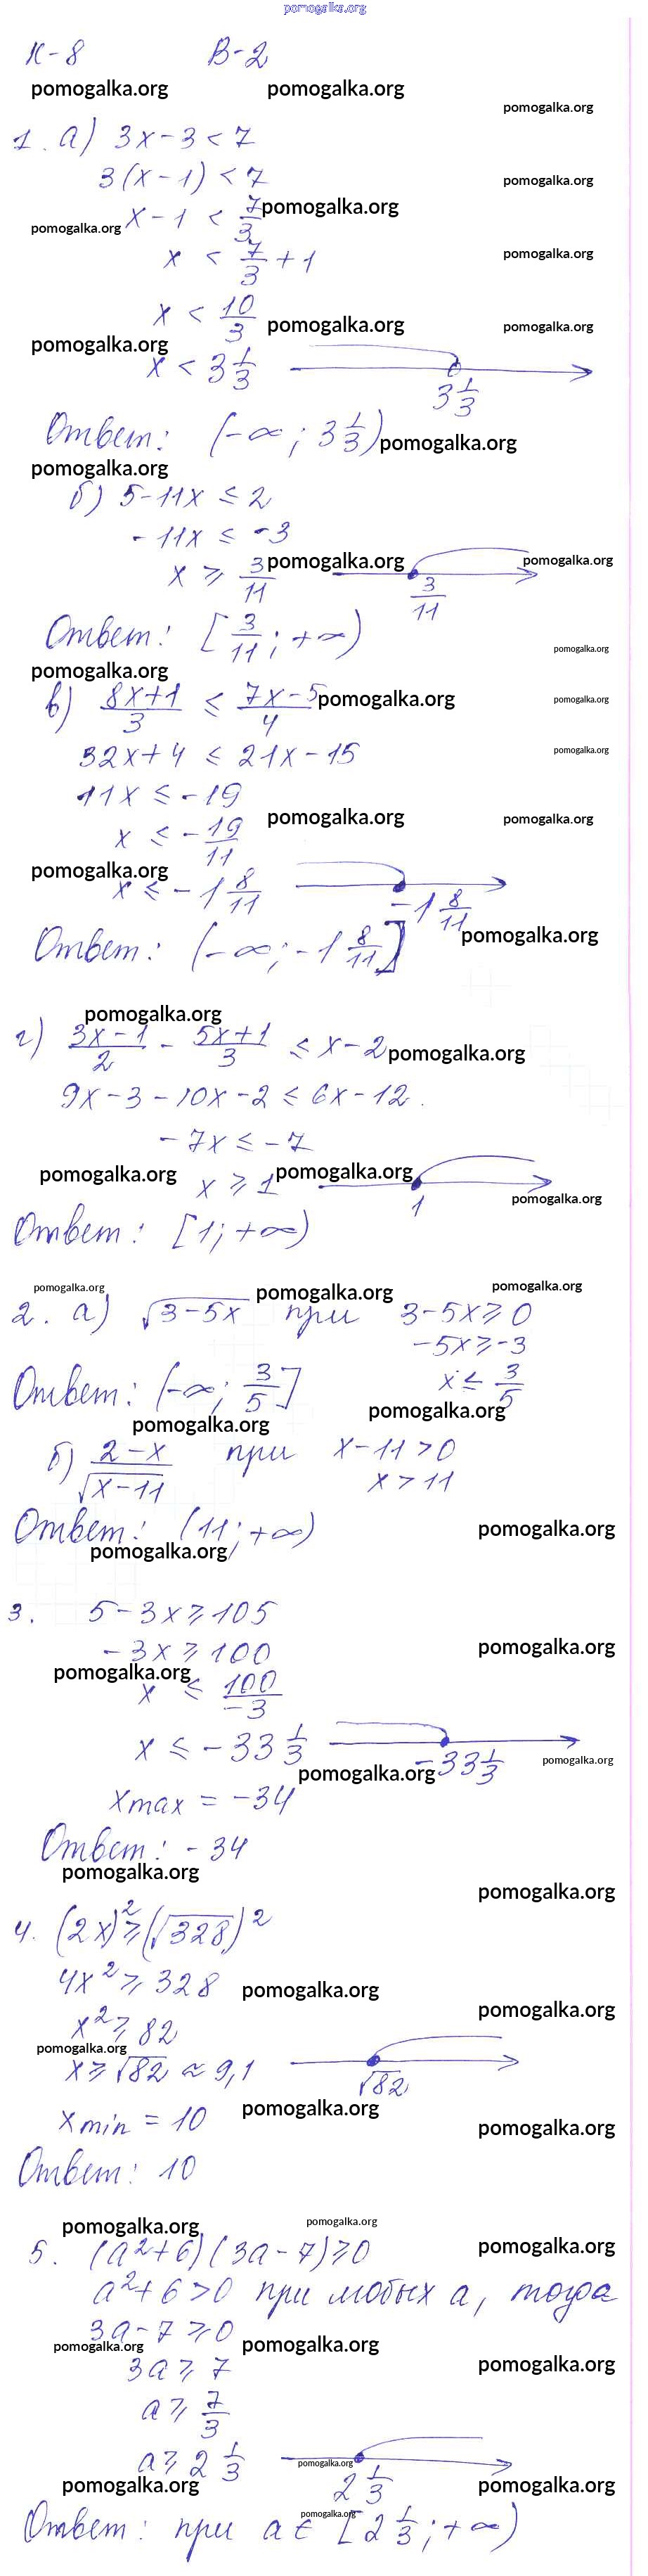 pomogalka.org
К-8 В-2
pomogalka.org pomogalka.org
pomogalka.org
1. а) 3x-3<7
3(x-1)<7 pomogalka.org
x-1 < 7/3 pomogalka.org
pomogalka.org
x < 7/3 + 1 pomogalka.org
x < 10/3 pomogalka.org pomogalka.org
pomogalka.org
x < 3 1/3 3 1/3
Ответ: (-∞; 3 1/3) pomogalka.org
pomogalka.org
б) 5-11x ≤ 2
-11x ≤ -3
x ⩾ 3/11 pomogalka.org 3/11 pomogalka.org
Ответ: [3/11; +∞)
pomogalka.org
pomogalka.org
в) (8x+1)/3 ≤ (7x-5)/4 pomogalka.org pomogalka.org
32x+4 ≤ 21x-15 pomogalka.org
11x ≤ -19
x ≤ -19/11 pomogalka.org pomogalka.org
pomogalka.org
x ≤ -1 8/11 -1 8/11
Ответ: (-∞; -1 8/11] pomogalka.org
pomogalka.org
г) (3x-1)/2 - (5x+1)/3 ≤ x-2 pomogalka.org
9x-3-10x-2 ≤ 6x-12.
-7x ≤ -7
pomogalka.org x ⩾ 1 pomogalka.org 1 pomogalka.org
Ответ: [1; +∞)
pomogalka.org pomogalka.org pomogalka.org
2. а) √(3-5x) при 3-5x⩾0
-5x⩾-3
Ответ: (-∞; 3/5] x ≤ 3/5
pomogalka.org
pomogalka.org
б) (2-x)/√(x-11) при x-11>0
x>11
Ответ: (11; +∞) pomogalka.org
pomogalka.org
3. 5-3x⩾105
-3x⩾100 pomogalka.org
pomogalka.org
x ≤ 100/-3
x ≤ -33 1/3 -33 1/3
pomogalka.org pomogalka.org
xmax = -34
Ответ: -34
pomogalka.org
pomogalka.org
4. (2x)²⩾(√328)²
4x²⩾328 pomogalka.org
pomogalka.org
x²⩾82
pomogalka.org
x⩾√82≈9,1 √82
xmin = 10 pomogalka.org
pomogalka.org
Ответ: 10
pomogalka.org pomogalka.org
5. (a²+6)(3a-7)⩾0 pomogalka.org
a²+6>0 при любых a, тогда
3a-7⩾0
pomogalka.org pomogalka.org
3a⩾7 pomogalka.org
a⩾ 7/3
a⩾ 2 1/3 2 1/3
pomogalka.org
pomogalka.org pomogalka.org
pomogalka.org
Ответ: при a∈ [2 1/3; +∞)